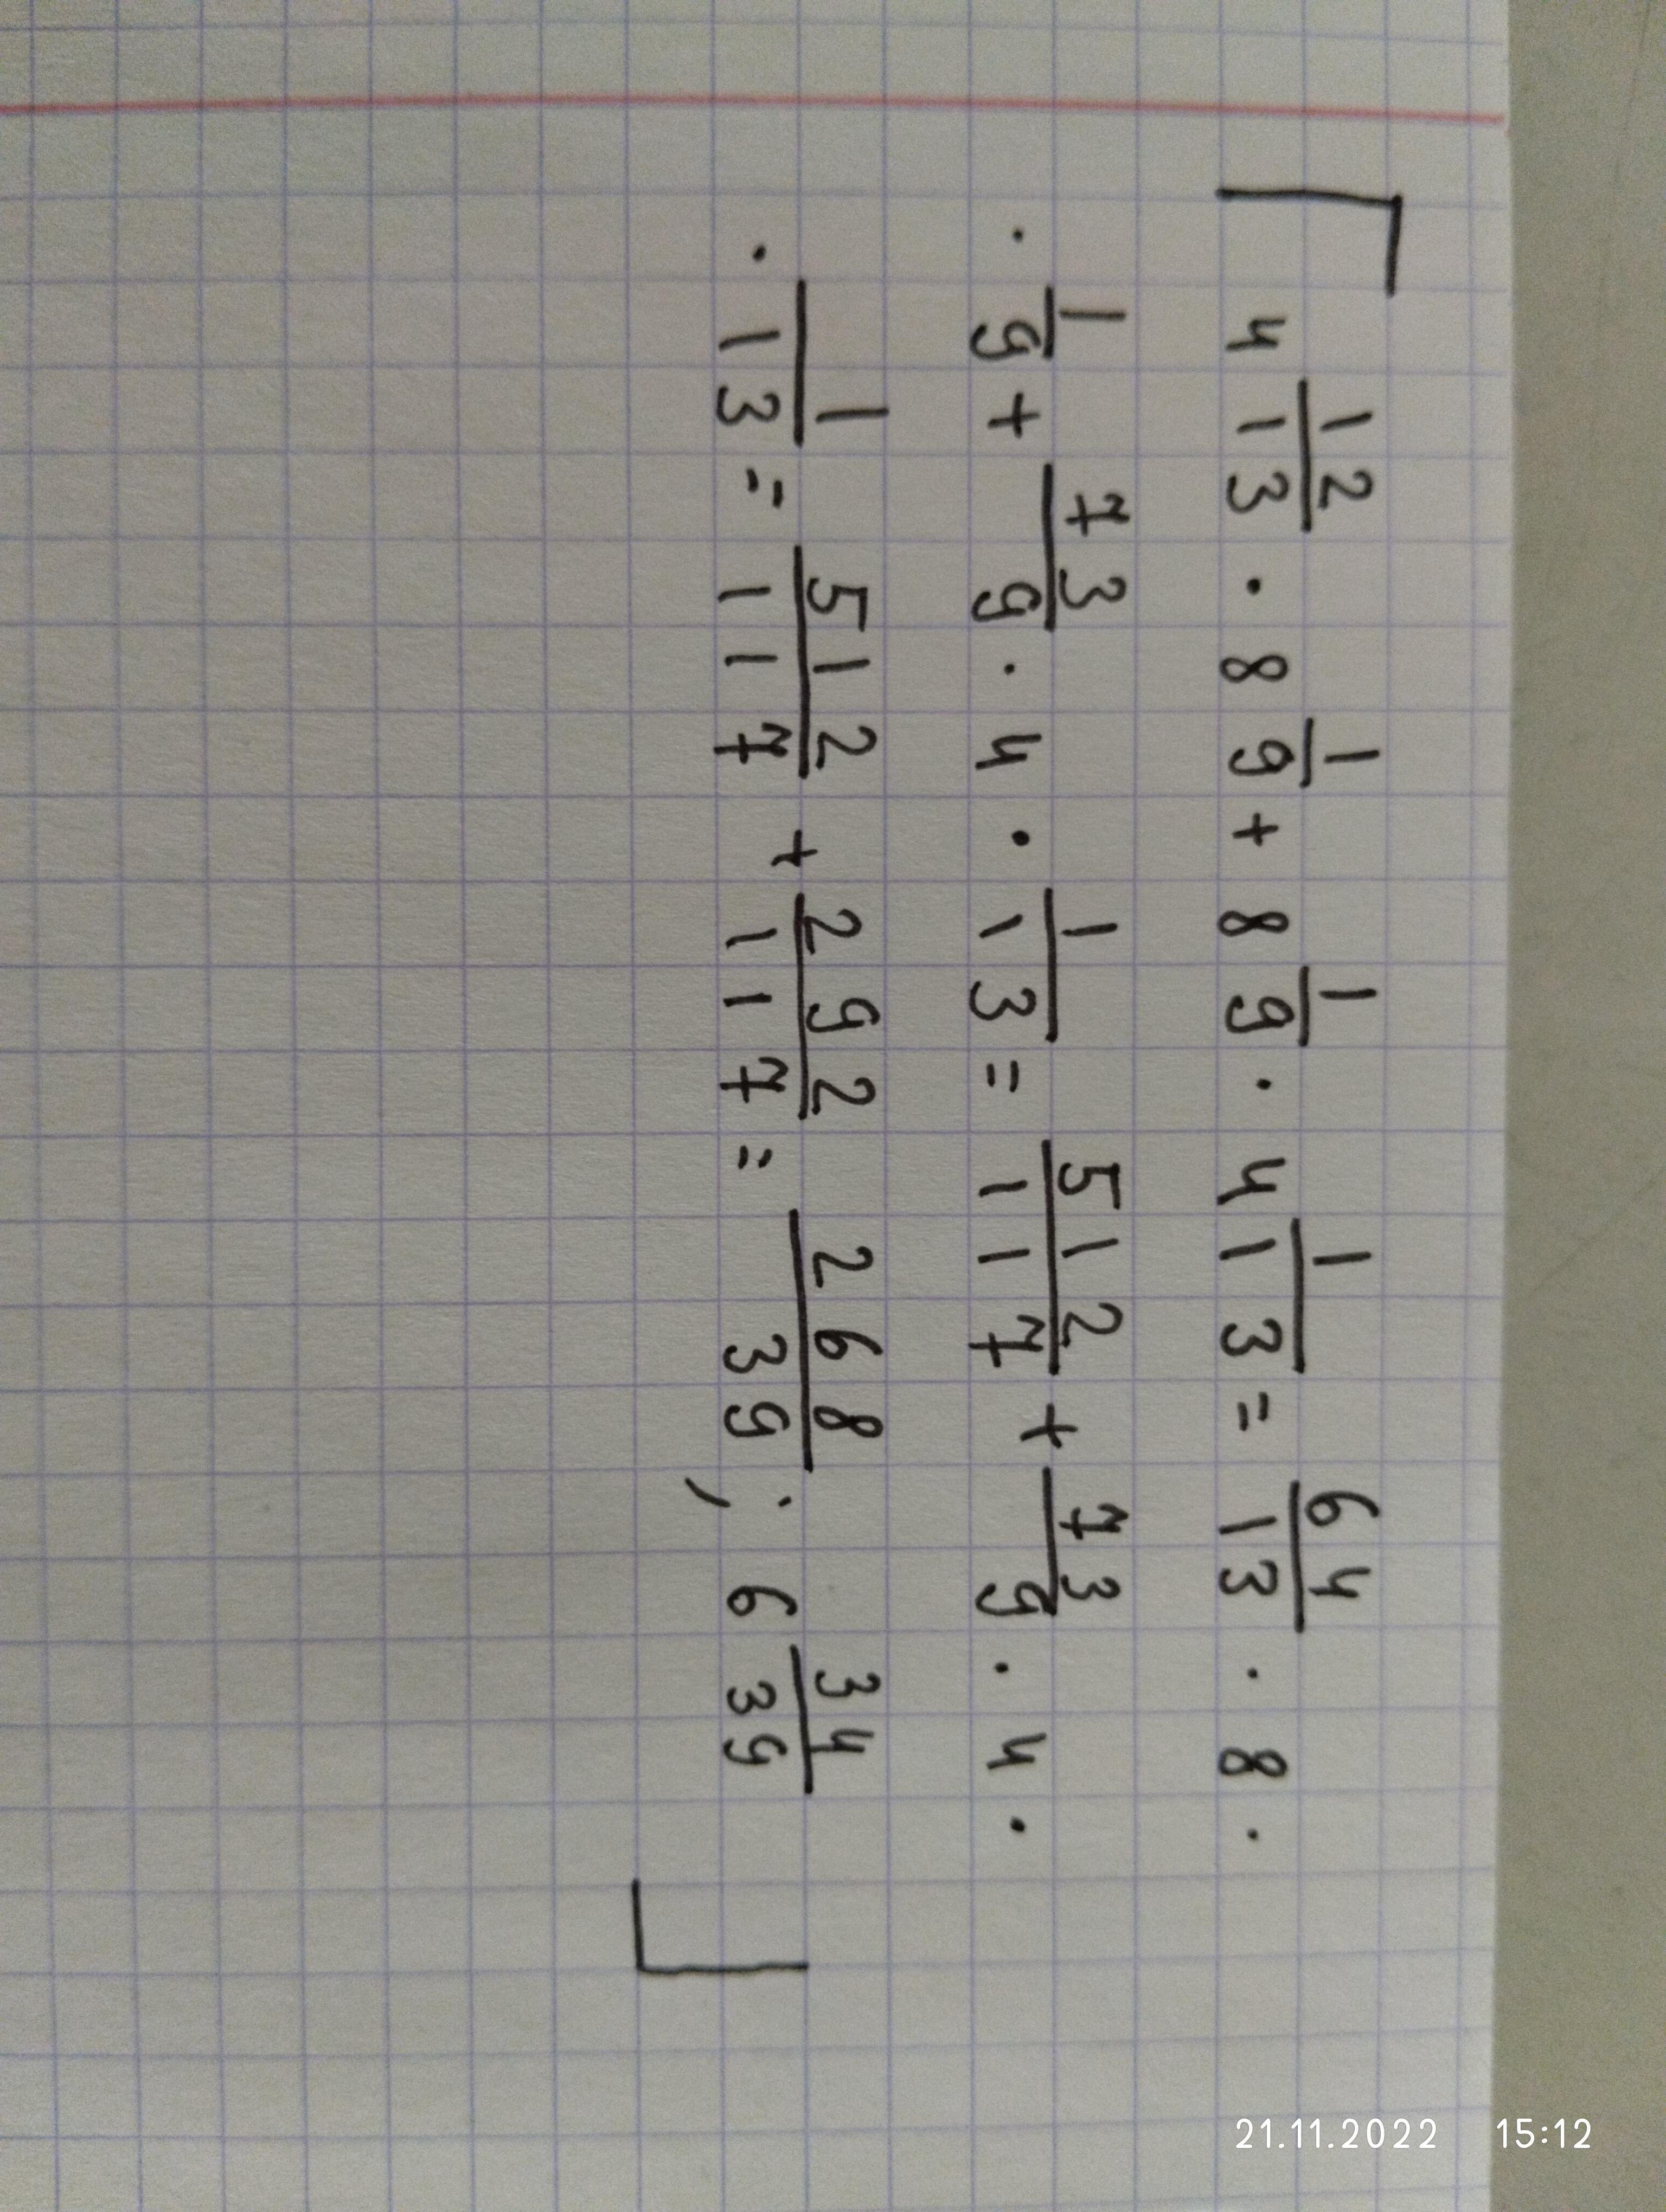 4 12/13 · 8 1/9 + 8 1/9 · 4 1/13 = 64/13 · 8 ·
· 1/9 + 73/9 · 4 · 1/13 = 512/117 + 73/9 · 4 ·
· 1/13 = 512/117 + 292/117 = 268/39; 6 34/39
21.11.2022 15:12